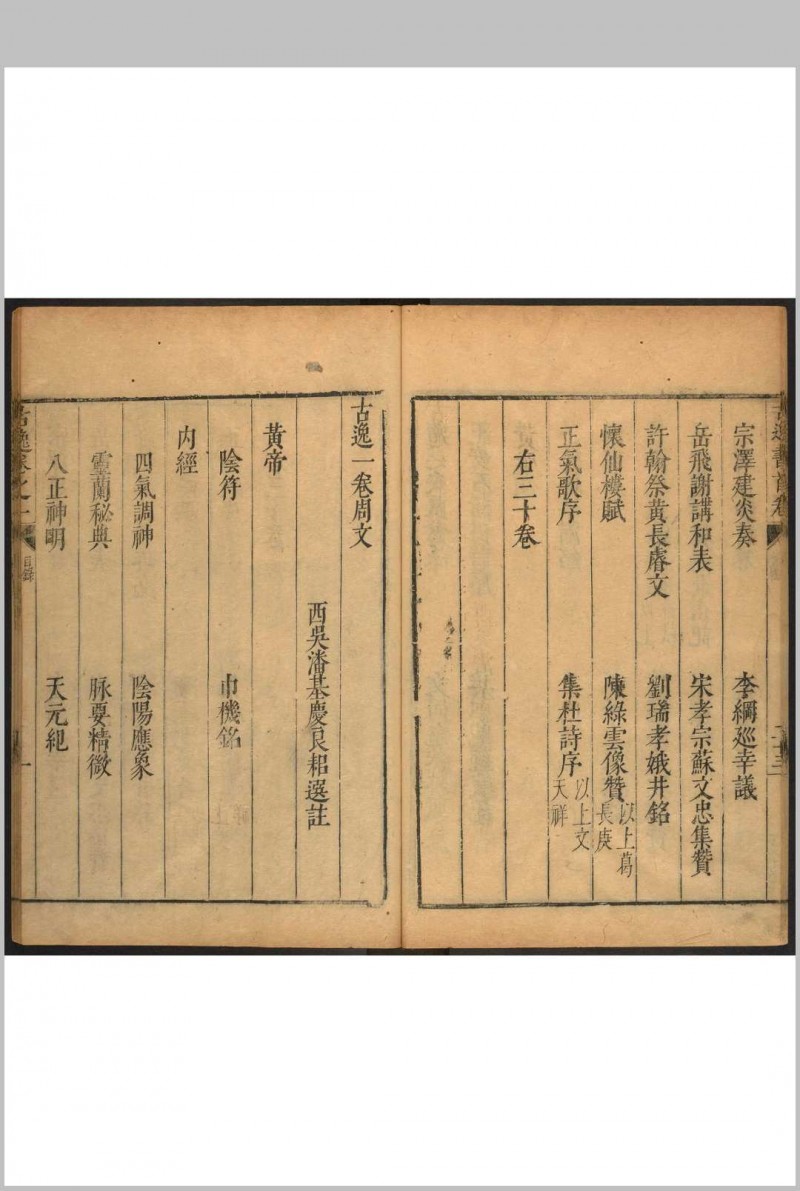 宗澤建炎奏　李綱巡幸議
岳飛謝講和表　宋孝宗蘇文忠集贊
許翰祭黃長睿文　劉瑞孝娥井銘
懷仙樓賦　陳綠雲像贊以上葛長庚
正氣歌序　集杜詩序以上文天祥
右三十卷
古逸一卷周文
西吳潘基慶良耜選註
黃帝
陰符　巾機銘
內經
四氣調神　陰陽應象
靈蘭秘典　脉要精微
八正神明　天元紀
古逸卷之一　目錄　一